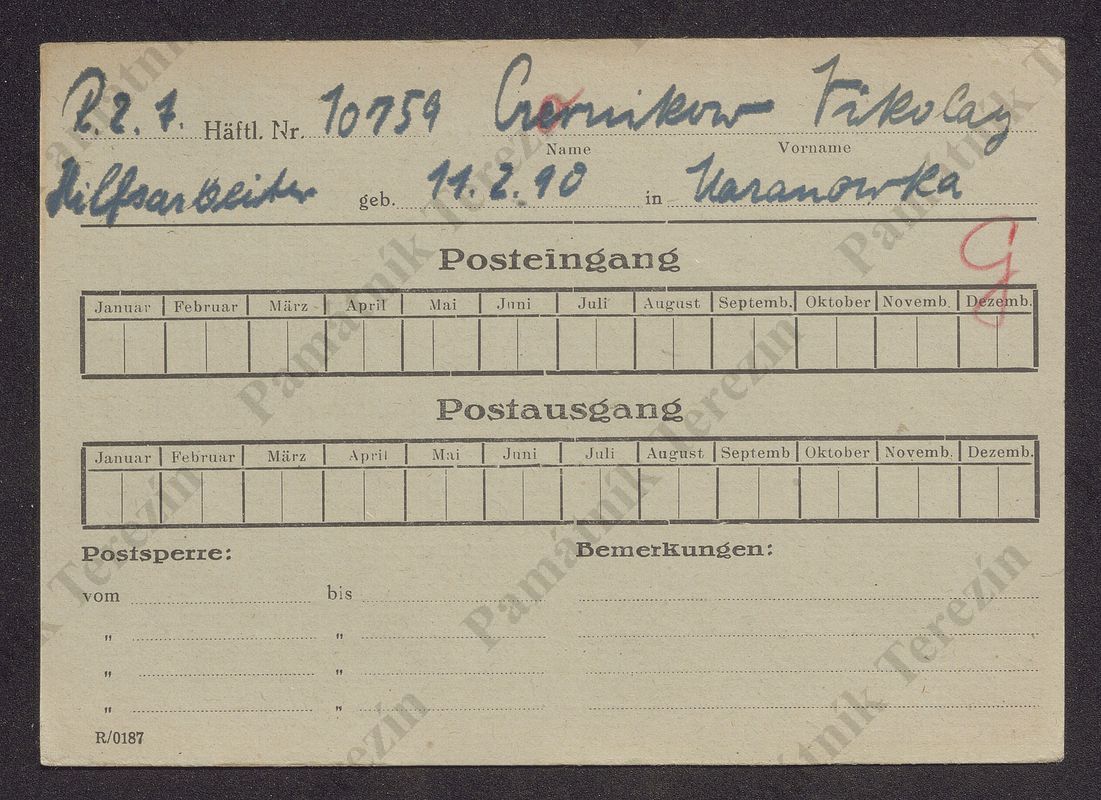 R. 2. 7. Häftl. Nr. 10759 Czernikow Nikolay
Name Vorname
Hilfsarbeiter geb. 11. 2. 10 in Naranowka
Posteingang
Januar Februar März April Mai Juni Juli August Septemb. Oktober Novemb. Dezemb.
Postausgang
Januar Februar März April Mai Juni Juli August Septemb Oktober Novemb. Dezemb.
Postsperre: Bemerkungen:
vom bis
" "
" "
" "
R/0187
Památník Terezín